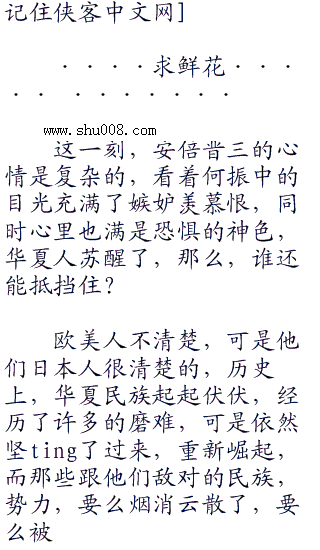 记住侠客中文网]
····求鲜花···
··········
www.shu008.com
这一刻，安倍晋三的心
情是复杂的，看着何振中的
目光充满了嫉妒羡慕恨，同
时心里也满是恐惧的神色，
华夏人苏醒了，那么，谁还
能抵挡住？
欧美人不清楚，可是他
们日本人很清楚的，历史
上，华夏民族起起伏伏，经
历了许多的磨难，可是依然
坚ting了过来，重新崛起，
而那些跟他们敌对的民族，
势力，要么烟消云散了，要
么被